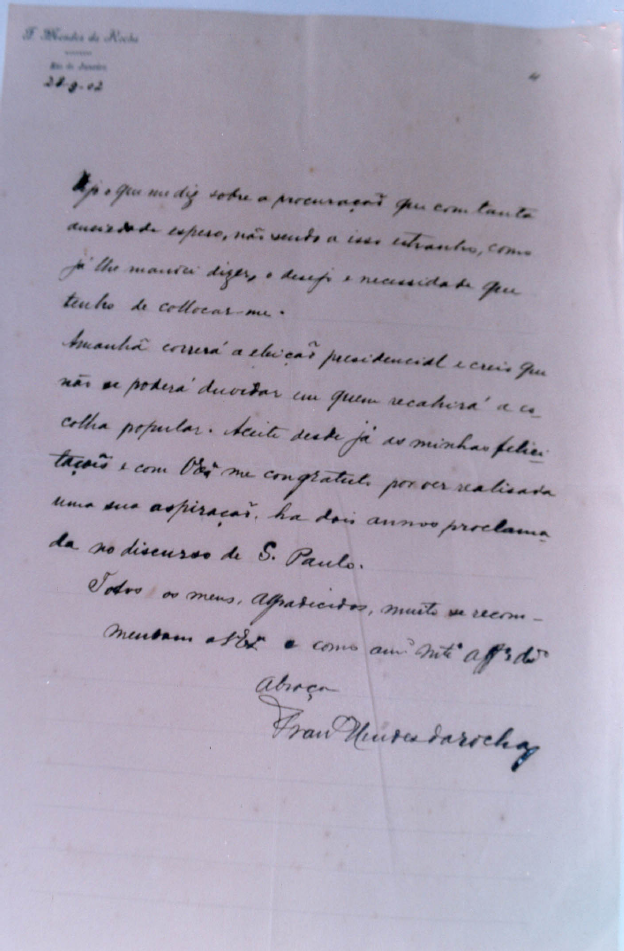 F. Mendes da Rocha
Rio de Janeiro
28-9-02
4
Vejo o que me diz sobre a procuração que com tanta
anciedade espero, não sendo a isso estranho, como
já lhe mandei dizer, o desejo e necessidade que
tenho de collocar-me.
Amanhã correrá a eleição presidencial e creio que
não se poderá duvidar em quem recahirá a es-
colha popular. Aceite desde já as minhas felici-
tações e com VExª me congratulo por ver realisada
uma sua aspiração, ha dois annos proclama-
da no discurso de S. Paulo.
Todos os meus, agradecidos, muito se recom-
mendam a VExª e como amº mtº affº
abraça
Fran Mendes da Rocha